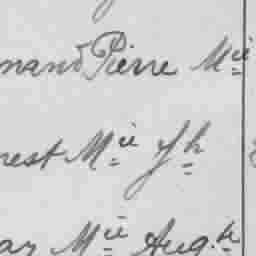 mand Pierre Mie
nest Mie Jh
ay Mie Aug.te